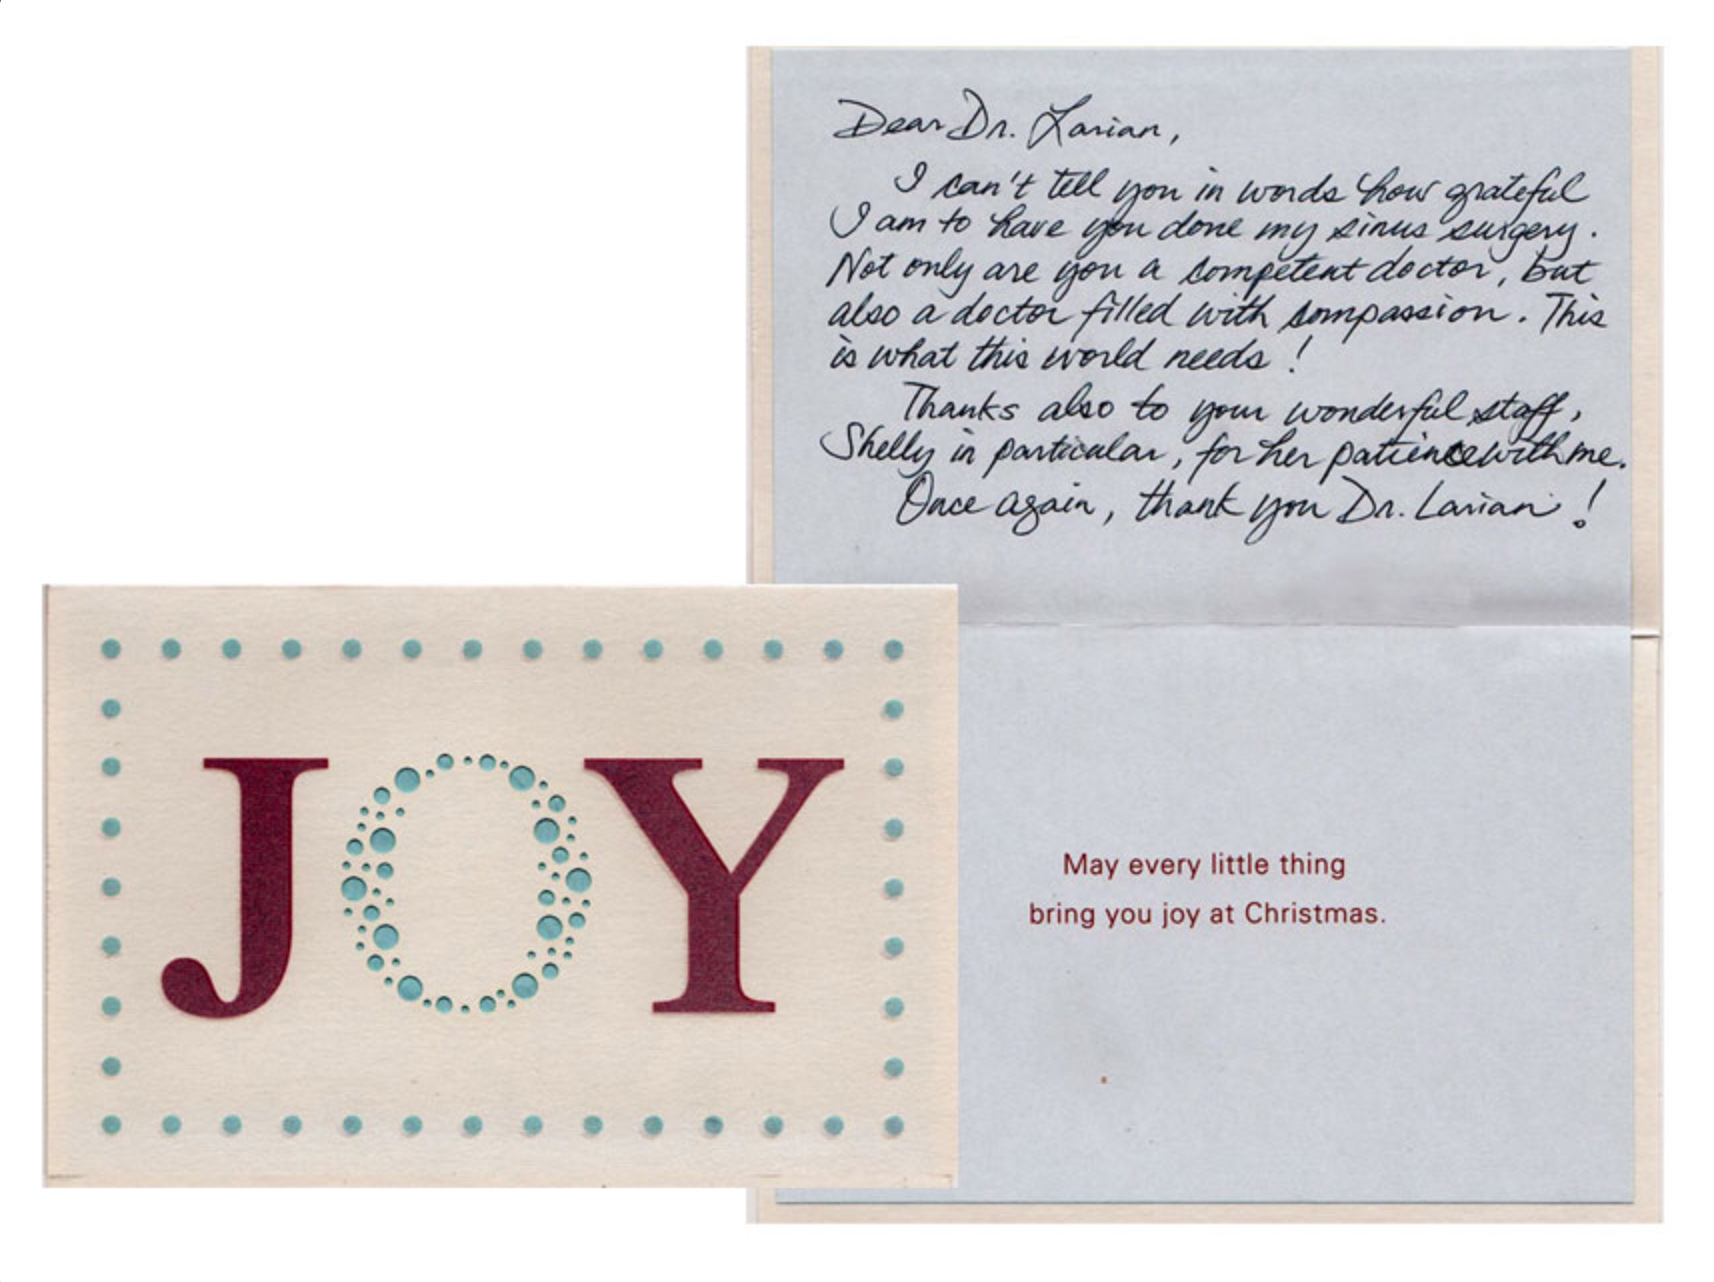 Dear Dr. Larian,
I can't tell you in words how grateful
I am to have you done my sinus surgery.
Not only are you a competent doctor, but
also a doctor filled with compassion. This
is what this world needs!
Thanks also to your wonderful staff,
Shelly in particular, for her patience with me.
Once again, thank you Dr. Larian!
JOY
May every little thing
bring you joy at Christmas.